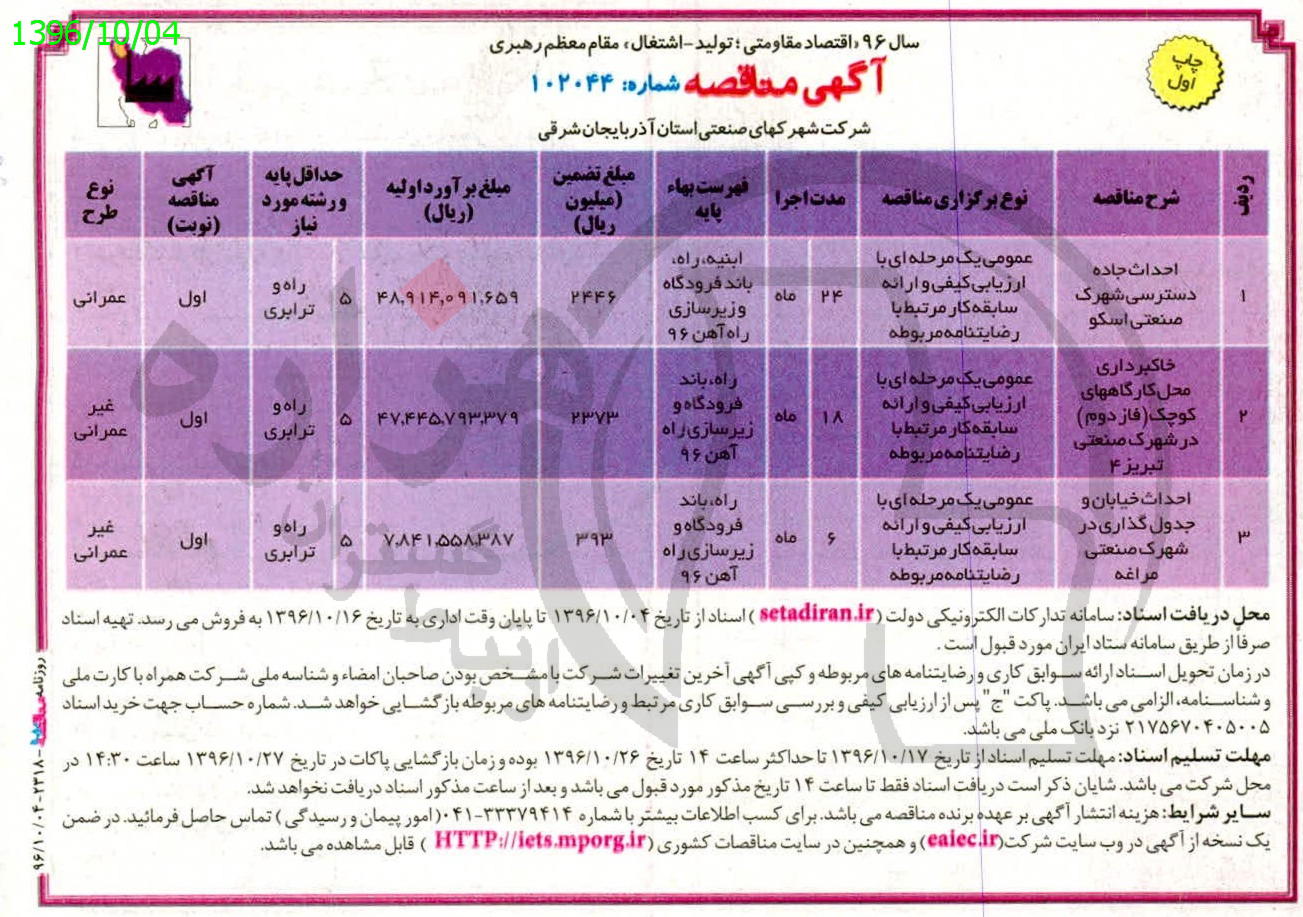 1396/10/04
سال ۹۶ «اقتصاد مقاومتی؛ تولید-اشتغال» مقام معظم رهبری
چاپ اول
آگهی مناقصه شماره: ۱۰۲۰۴۴
شرکت شهرکهای صنعتی استان آذربایجان شرقی
ردیف | شرح مناقصه | نوع برگزاری مناقصه | مدت اجرا | فهرست بهاء پایه | مبلغ تضمین (میلیون ریال) | مبلغ برآورد اولیه (ریال) | حداقل پایه و رشته مورد نیاز | آگهی مناقصه (نوبت) | نوع طرح
۱ | احداث جاده دسترسی شهرک صنعتی اسکو | عمومی یک مرحله ای با ارزیابی کیفی و ارائه سابقه کار مرتبط با رضایتنامه مربوطه | ۲۴ ماه | ابنیه، راه، باند فرودگاه و زیرسازی راه آهن ۹۶ | ۲۴۴۶ | ۴۸,۹۱۴,۰۹۱,۶۵۹ | ۵ راه و ترابری | اول | عمرانی
۲ | خاکبرداری محل کارگاههای کوچک (فاز دوم) در شهرک صنعتی تبریز ۴ | عمومی یک مرحله ای با ارزیابی کیفی و ارائه سابقه کار مرتبط با رضایتنامه مربوطه | ۱۸ ماه | راه، باند فرودگاه و زیرسازی راه آهن ۹۶ | ۲۳۷۳ | ۴۷,۴۴۵,۷۹۳,۳۷۹ | ۵ راه و ترابری | اول | غیر عمرانی
۳ | احداث خیابان و جدول گذاری در شهرک صنعتی مراغه | عمومی یک مرحله ای با ارزیابی کیفی و ارائه سابقه کار مرتبط با رضایتنامه مربوطه | ۶ ماه | راه، باند فرودگاه و زیرسازی راه آهن ۹۶ | ۳۹۳ | ۷,۸۴۱,۵۵۸,۳۸۷ | ۵ راه و ترابری | اول | غیر عمرانی
محل دریافت اسناد: سامانه تدارکات الکترونیکی دولت (setadiran.ir) اسناد از تاریخ ۱۳۹۶/۱۰/۰۴ تا پایان وقت اداری به تاریخ ۱۳۹۶/۱۰/۱۶ به فروش می رسد. تهیه اسناد
صرفا از طریق سامانه ستاد ایران مورد قبول است.
در زمان تحویل اسناد ارائه سوابق کاری و رضایتنامه های مربوطه و کپی آگهی آخرین تغییرات شرکت با مشخص بودن صاحبان امضاء و شناسه ملی شرکت همراه با کارت ملی
و شناسنامه، الزامی می باشد. پاکت "ج" پس از ارزیابی کیفی و بررسی سوابق کاری مرتبط و رضایتنامه های مربوطه بازگشایی خواهد شد. شماره حساب جهت خرید اسناد
۲۱۷۵۶۷۰۴۰۵۰۰۵ نزد بانک ملی می باشد.
مهلت تسلیم اسناد: مهلت تسلیم اسناد از تاریخ ۱۳۹۶/۱۰/۱۷ تا حداکثر ساعت ۱۴ تاریخ ۱۳۹۶/۱۰/۲۶ بوده و زمان بازگشایی پاکات در تاریخ ۱۳۹۶/۱۰/۲۷ ساعت ۱۴:۳۰ در
محل شرکت می باشد. شایان ذکر است دریافت اسناد فقط تا ساعت ۱۴ تاریخ مذکور مورد قبول می باشد و بعد از ساعت مذکور اسناد دریافت نخواهد شد.
سایر شرایط: هزینه انتشار آگهی بر عهده برنده مناقصه می باشد. برای کسب اطلاعات بیشتر با شماره ۳۳۳۷۹۴۱۴-۰۴۱ (امور پیمان و رسیدگی) تماس حاصل فرمائید. در ضمن
یک نسخه از آگهی در وب سایت شرکت (eaiec.ir) و همچنین در سایت مناقصات کشوری (HTTP://iets.mporg.ir) قابل مشاهده می باشد.
هزاره
گستران